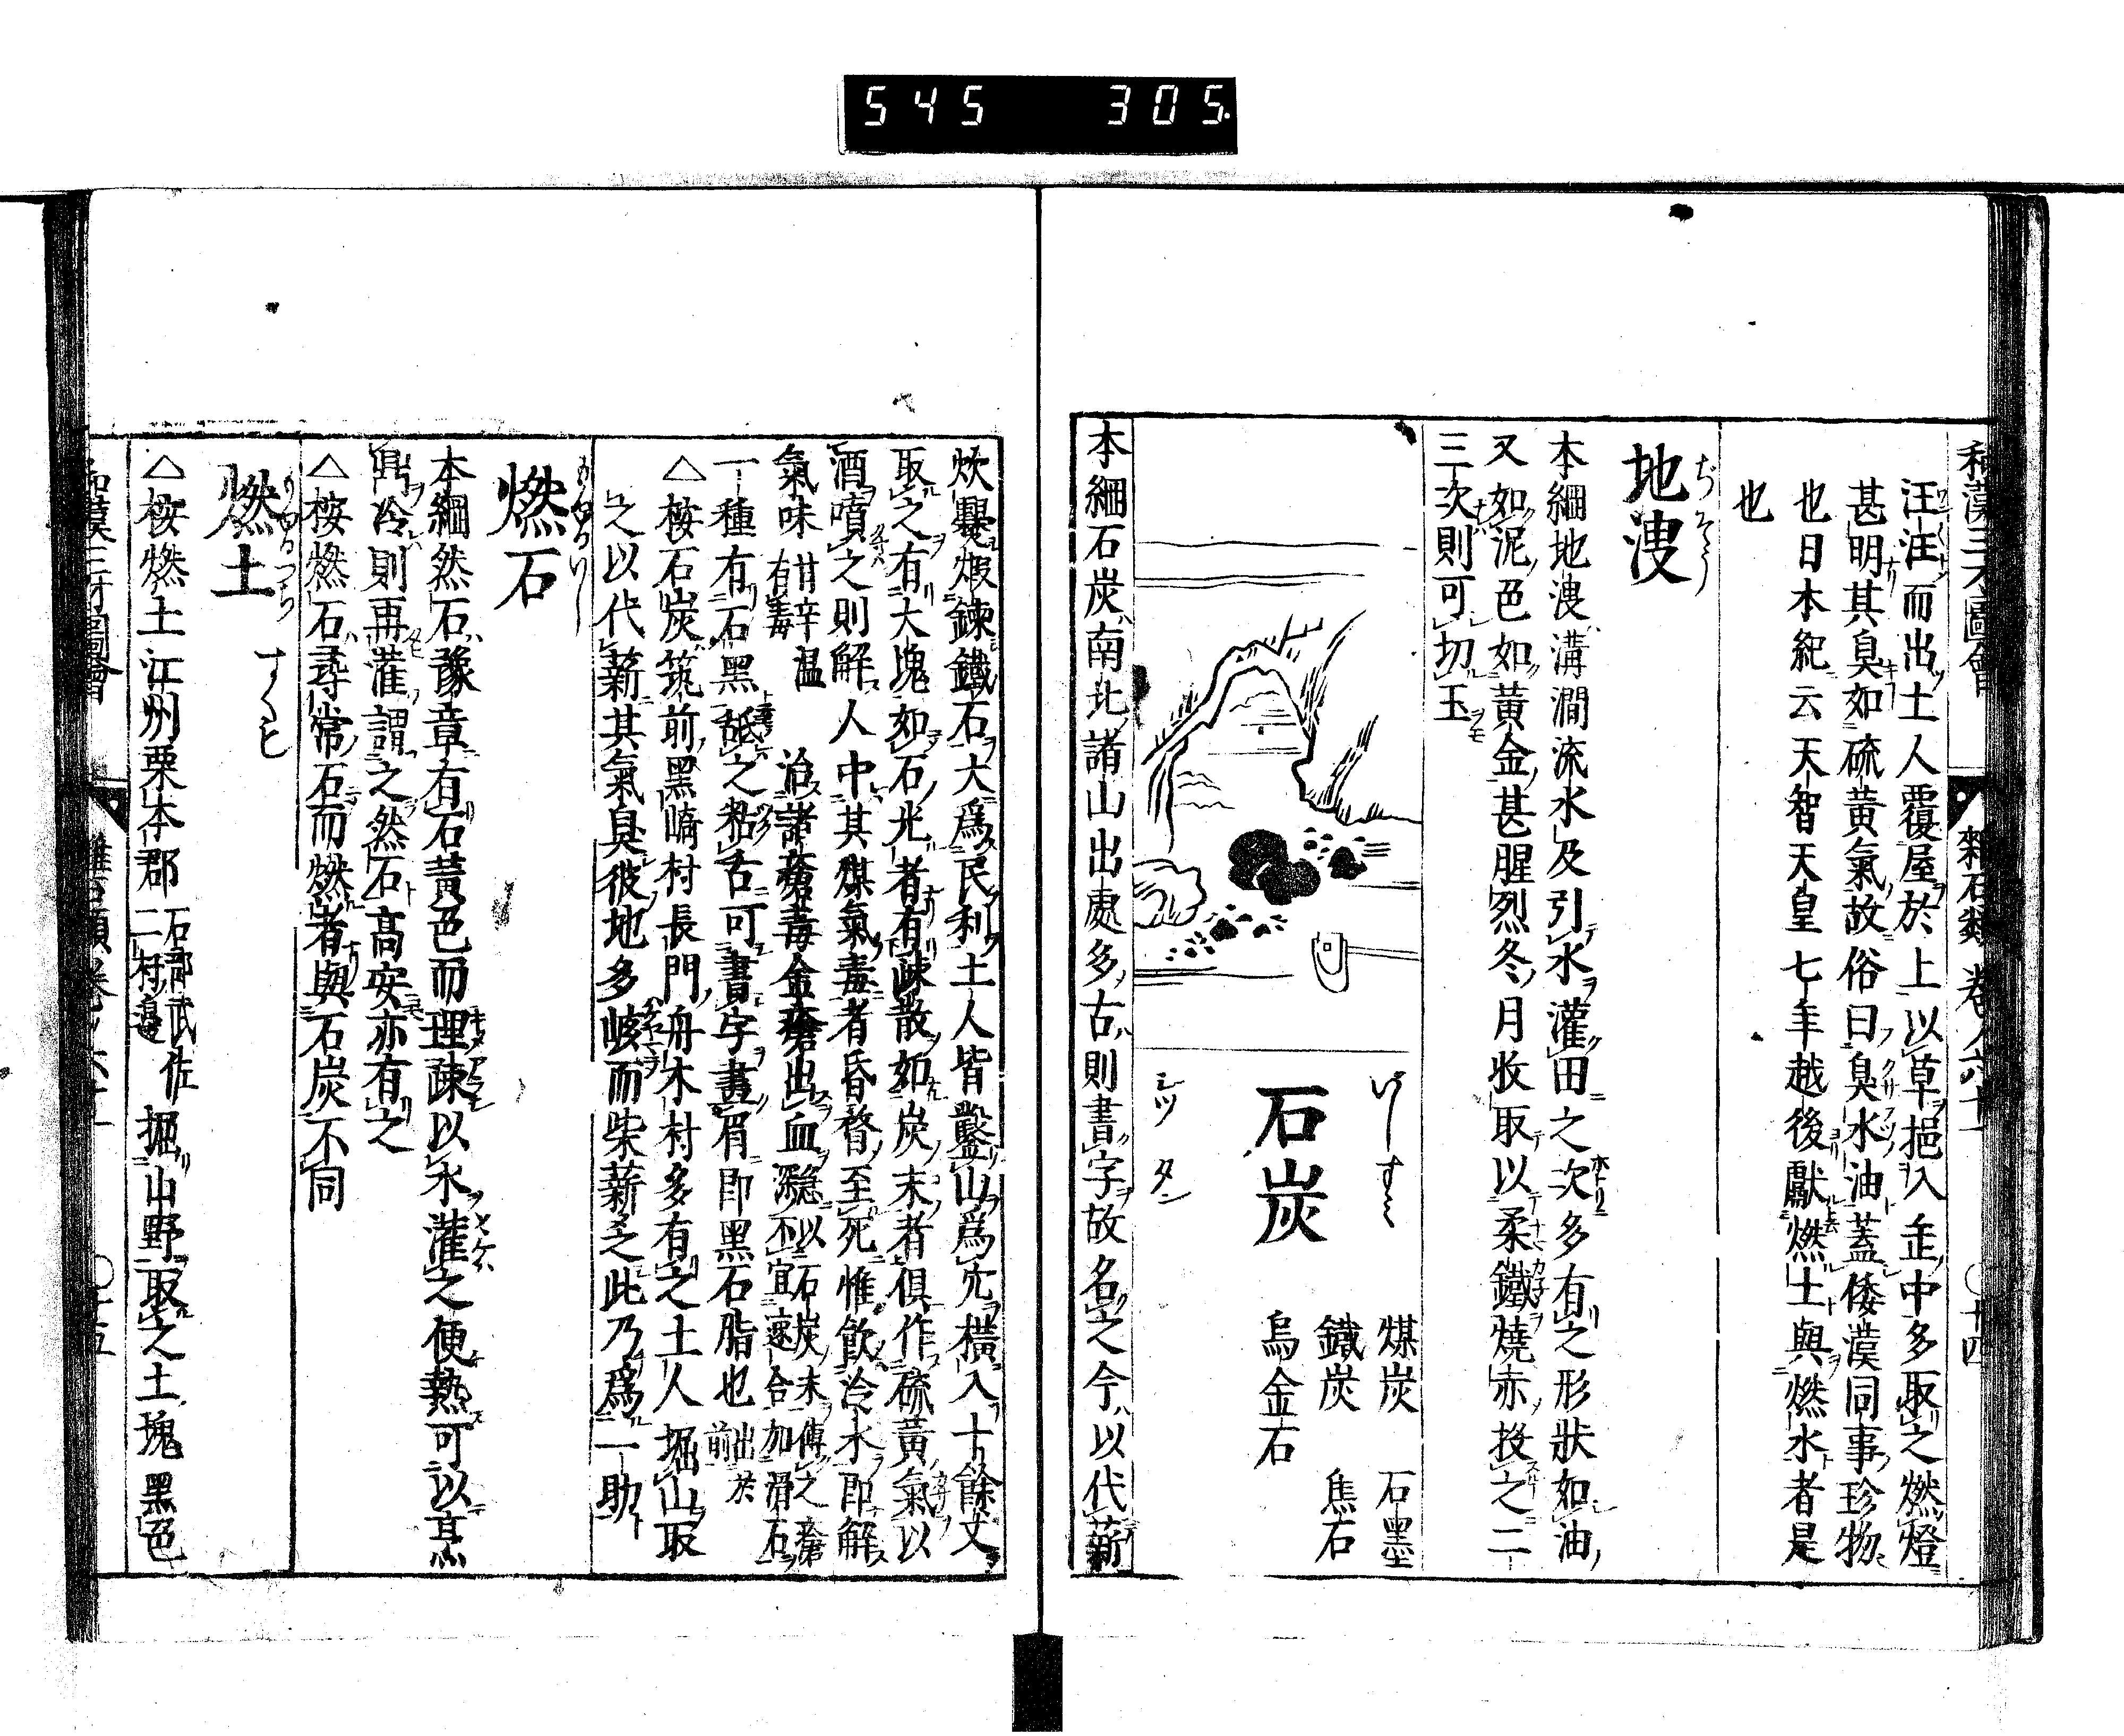 545 305
和漢三才圖會 雜石類 卷ノ六十一 〇十四
汪汪而出土人覆屋於上以草挹入缶中多取之燃燈
甚明其臭如硫黃氣故俗曰臭水油蓋倭漢同事珍物
也日本紀云天智天皇七年越後獻燃土與燃水者是
也
地溲
本綱地溲溝澗流水及引水灌田之次多有之形狀如油
又如泥色如黃金甚腥烈冬月收取以柔鐵燒赤投之二
三次則可切玉
いしすミ
石炭
シツ タン
煤炭 石墨
鐵炭 焦石
烏金石
本綱石炭南北諸山出處多古則書字故名之今以代薪
炊爨煅鍊鐵石大爲民利土人皆鑿山爲穴橫入十餘丈
取之有大塊如石光者有疎散如炭末者俱作硫黃氣以
酒噴之則解人中其煤氣毒者昏瞀至死惟飮冷水卽解
氣味甘辛温有毒 治諸瘡毒金瘡出血濺以石炭末傅之瘡深不宜速合加滑石
一種有石黑䑛之粘舌可書字畫眉卽黑石脂也出於前
△桉石炭筑前黑崎村長門舟木村多有之土人堀山取
之以代薪其氣臭彼地多岐而柴薪乏之此乃爲一助
燃石
本綱然石豫章有石黃色而理疎以水灌之便熱可以烹
鼎冷則再灌謂之然石高安亦有之
△桉燃石尋常石而燃者與石炭不同
燃土
すくも
△桉燃土江州栗本郡石部武佐二村邊掘山野取之土塊黑色
和漢三才圖會 雜石類 卷ノ六十一 〇十五